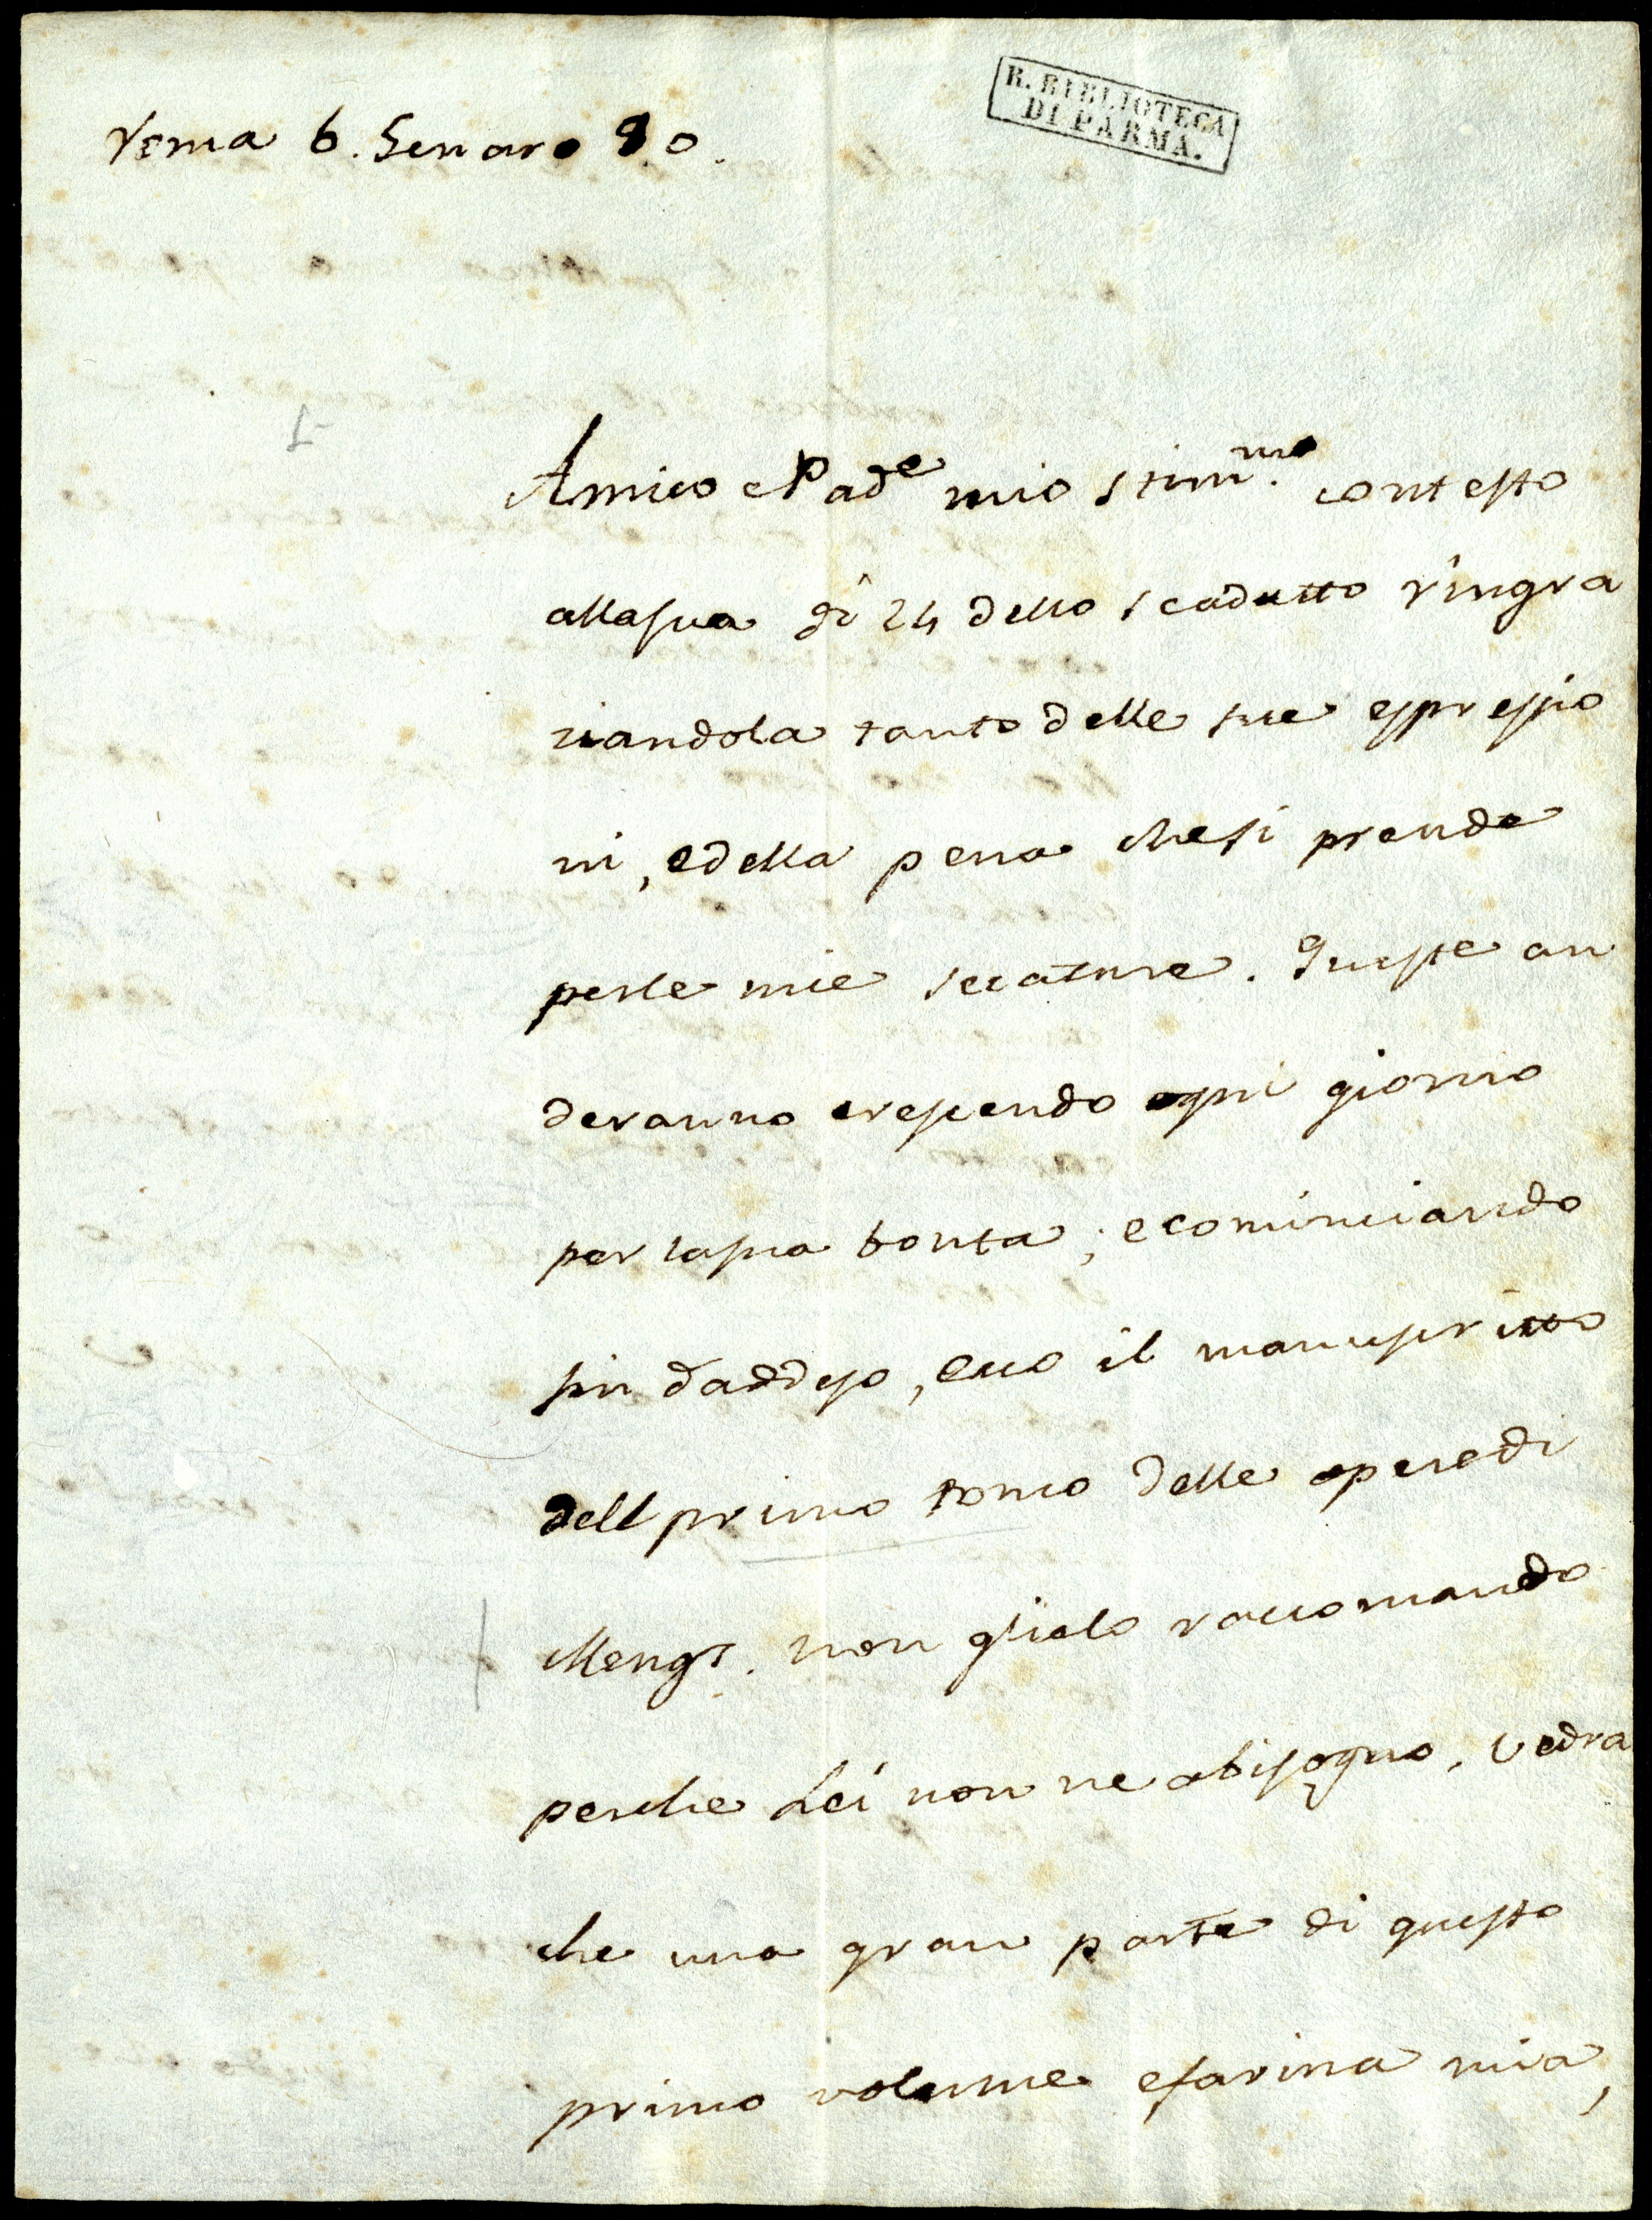 Roma 6. Genaro 80.
R. BIBLIOTECA
DI PARMA.
Amico e Pad.e mio stim.mo contesto
allasua di 24 dello scadutto ringra
ziandola tanto delle sue espressio
ni, edella pena chesi prende
perle mie seccature. Queste an
deranno crescendo ogni giorno
per lasua bonta; ecominciando
sin daddeso, ecco il manuscritto
dell primo tomo delle operedi
Mengs. non glielo raccomando
perche Lei non ne abisogno, vedra
che una gran parte di questo
primo volume efarina mia,